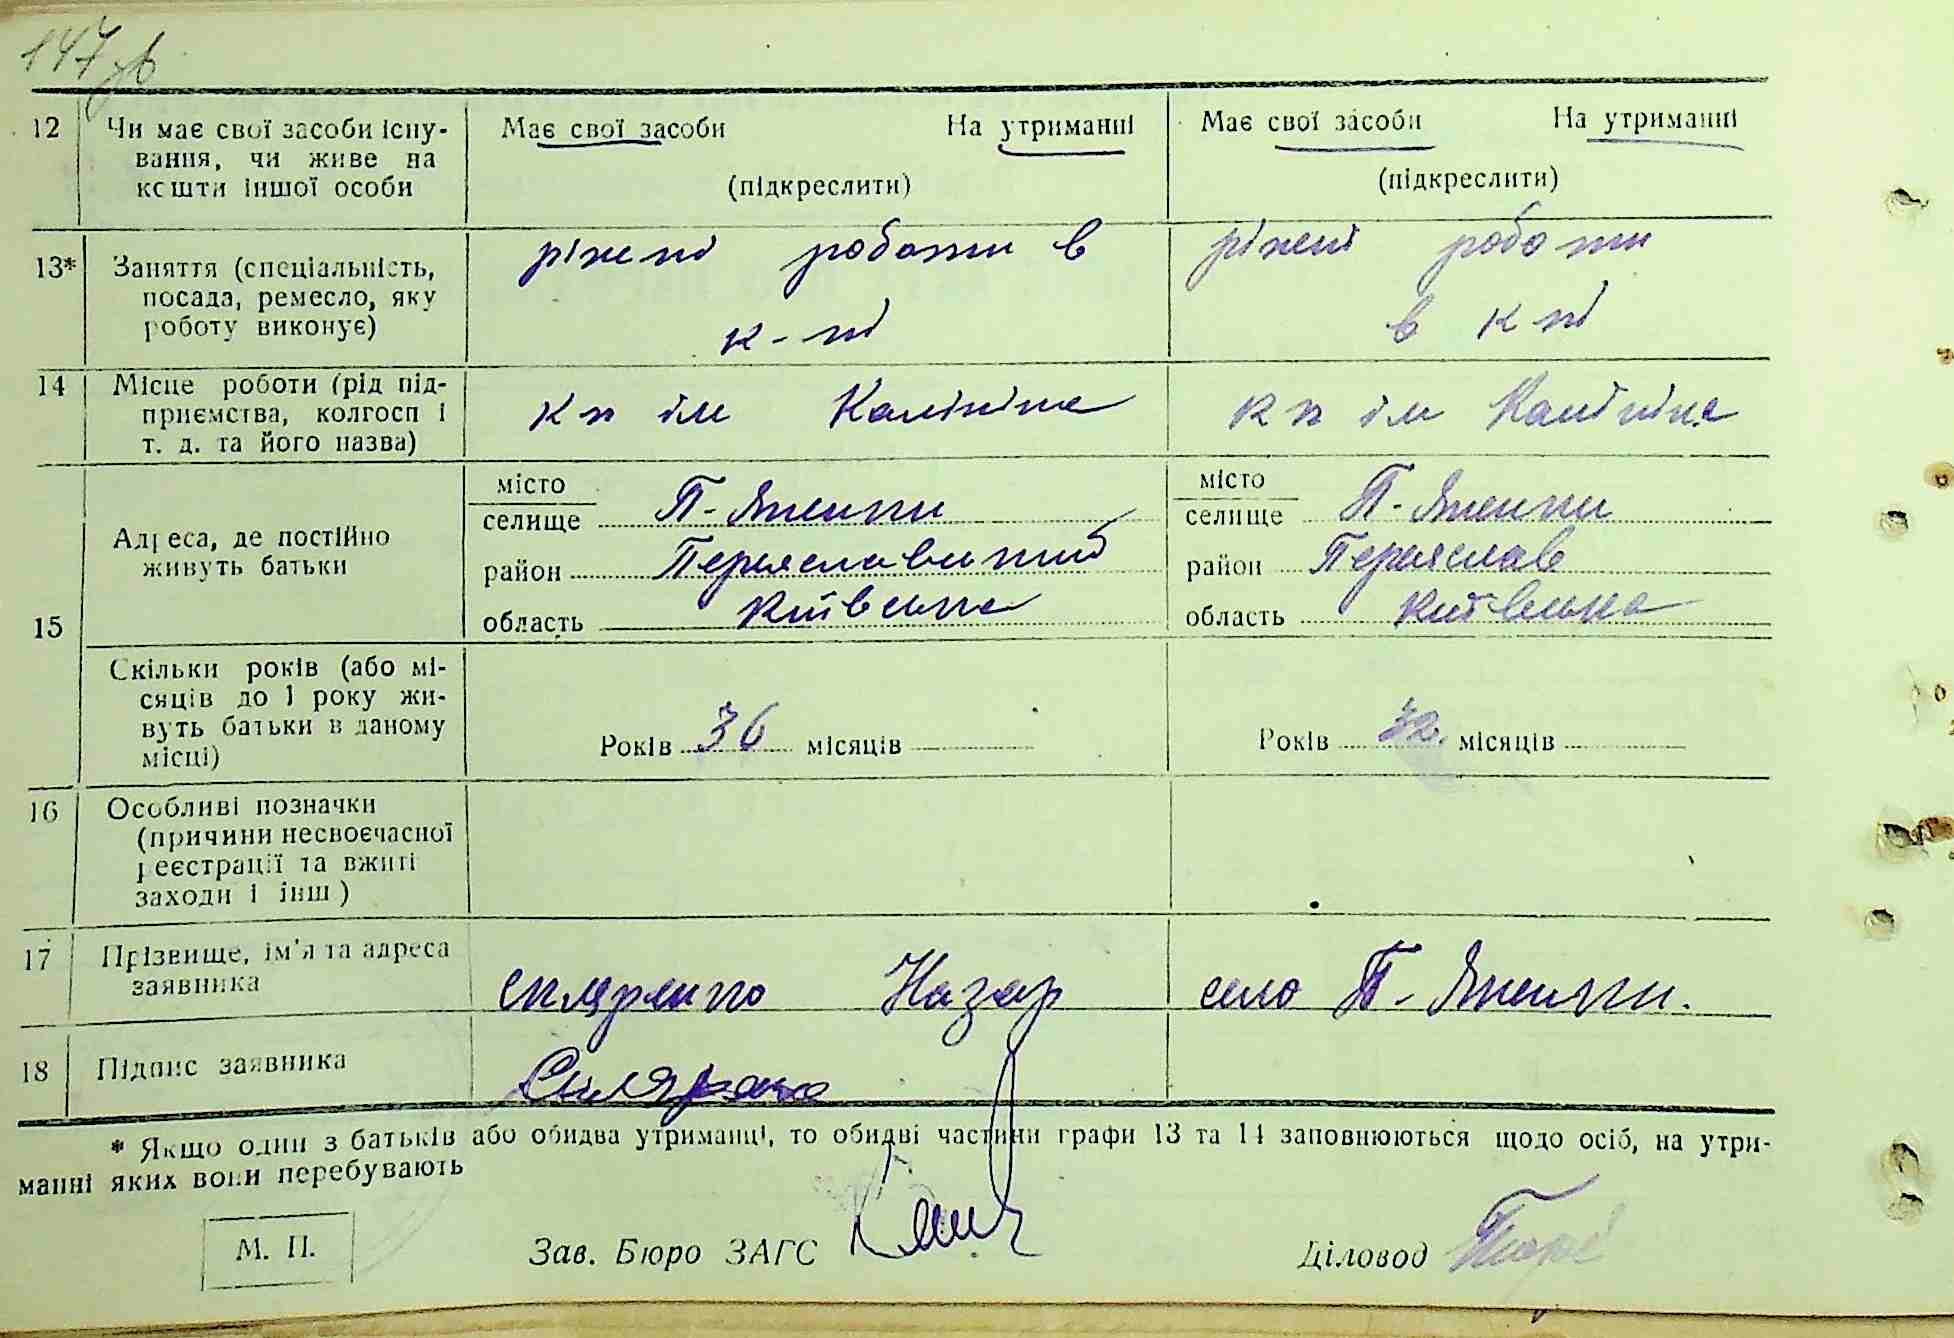 147 зв
12 Чи має свої засоби існу- Має свої засоби На утриманні Має свої засоби На утриманні
вання, чи живе на
кошти іншої особи (підкреслити) (підкреслити)
13* Заняття (спеціальність, ріжні роботи в ріжні роботи
посада, ремесло, яку
роботу виконує) к-пі в к пі
14 Місце роботи (рід під-
приємства, колгосп і кп ім Калініна кп ім Калініна
т. д. та його назва)
15 Адреса, де постійно
живуть батьки
місто
селище П-Яненки
район Переяславський
область Київська
місто
селище П-Яненки
район Переяслав
область Київська
Скільки років (або мі-
сяців до 1 року жи-
вуть батьки в даному
місці)
Років 36 місяців Років 32. місяців
16 Особливі позначки
(причини несвоєчасної
реєстрації та вжиті
заходи і інш)
17 Прізвище, ім'я та адреса
заявника скляренко Назар село П-Яненки.
18 Підпис заявника
* Якщо один з батьків або обидва утриманці, то обидві частини графи 13 та 14 заповнюються щодо осіб, на утри-
манні яких вони перебувають
М. П. Зав. Бюро ЗАГС Діловод